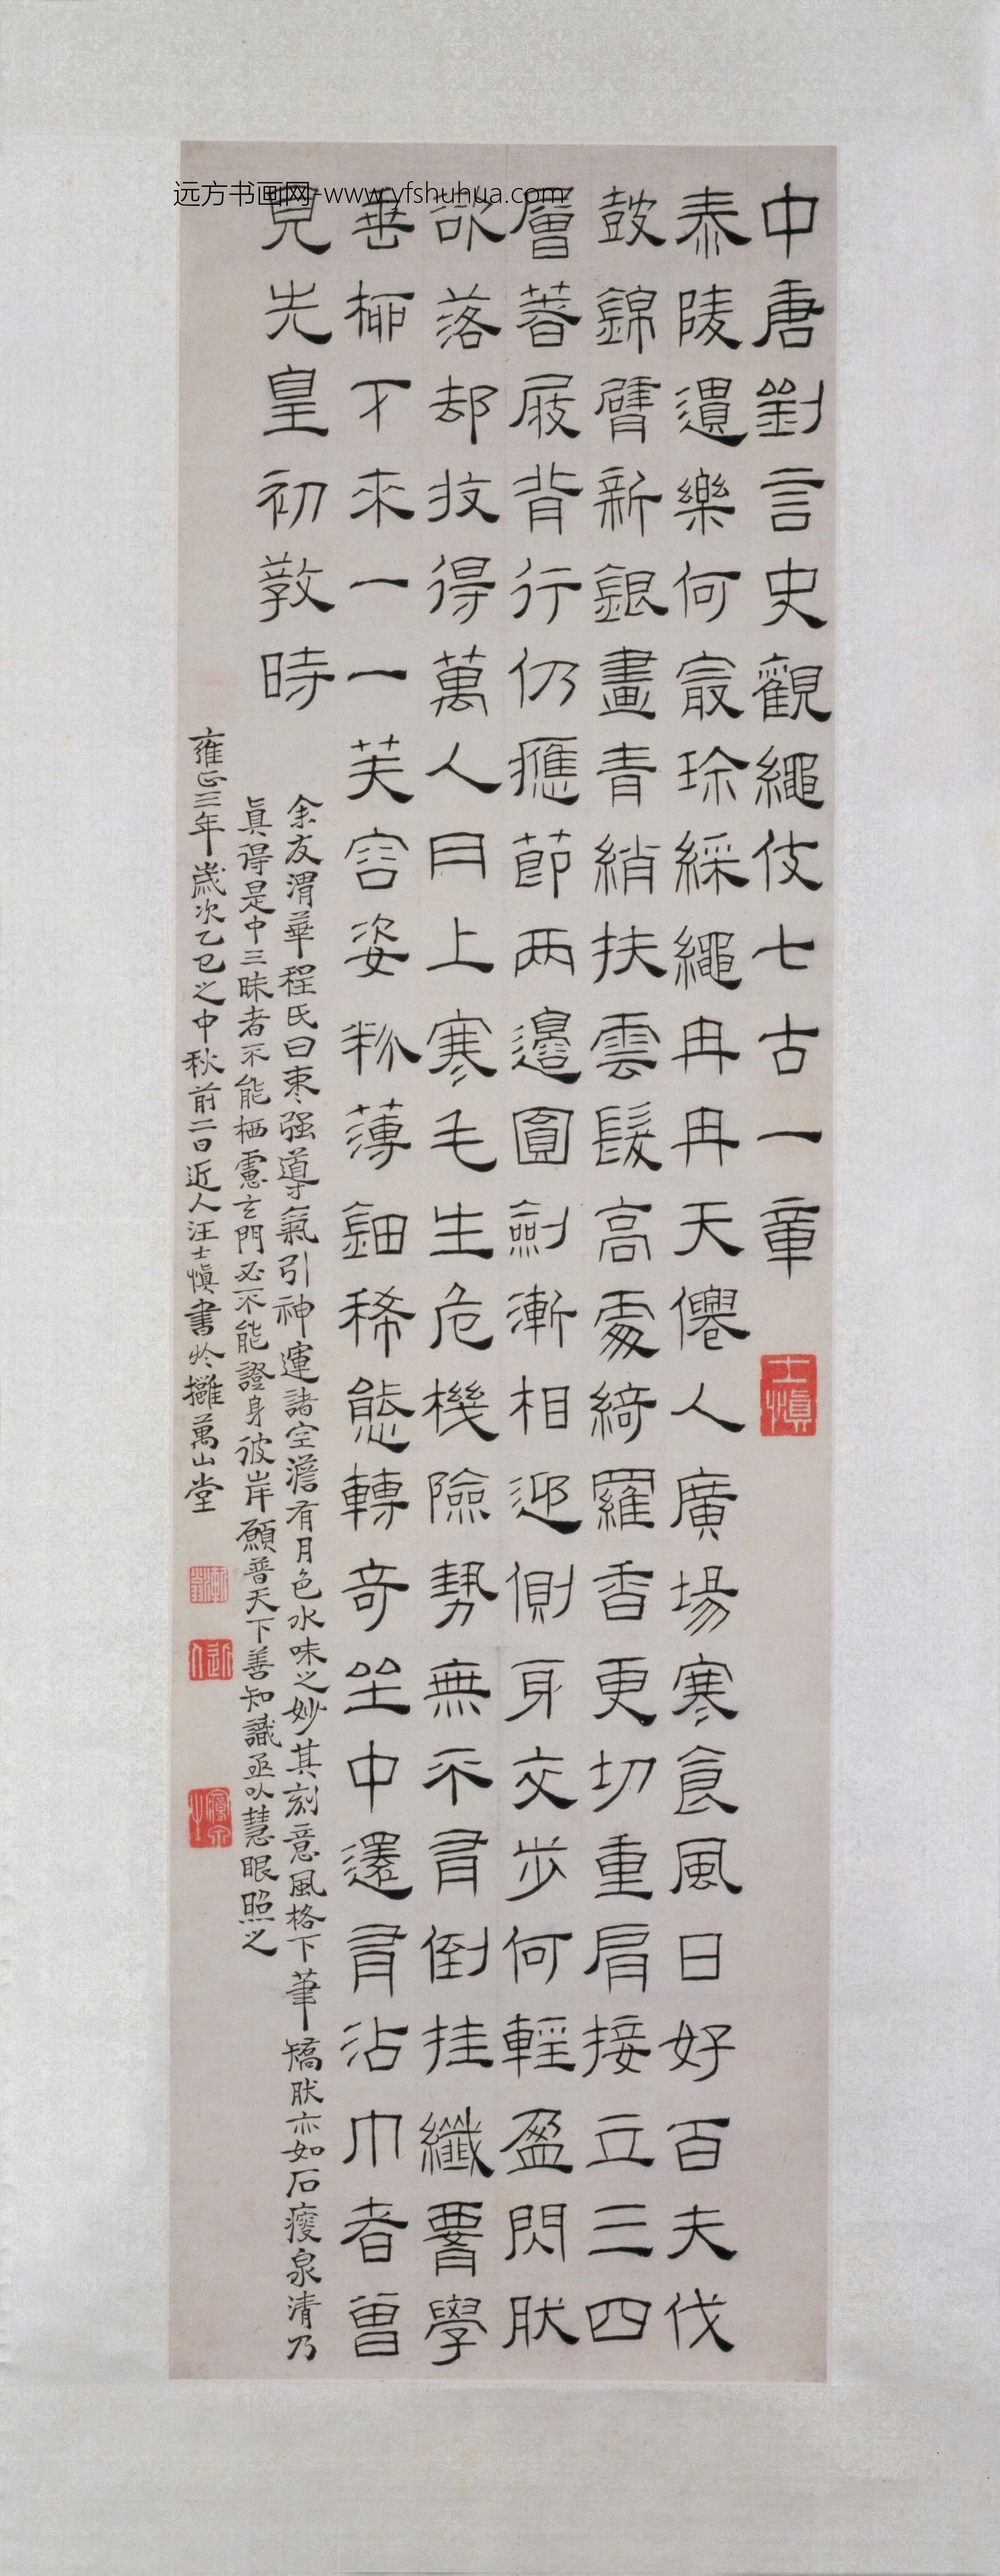 中唐劉言史觀繩伎七古一章
士慎
泰陵遺樂何最珍綵繩冉冉天僊人廣場寒食風日好百夫伐
鼓錦臂新銀畫青綃抹雲髮高處綺羅香更切重肩接立三四
層著屐背行仍應節兩邊圓劍漸相迎側身交步何輕盈閃肰
欲落却收得萬人肉上寒毛生危機險勢無不有倒挂纖腰學
垂柳下來一一芙容姿粉薄鈿稀態轉奇坐中還有沾巾者曾
見先皇初教時
余友渭華程氏曰棗强導氣引神運諸空澹有月色水味之妙其刻意風格下筆矯肰亦如石瘦泉清乃
眞得是中三昧者不能栖慮玄門必不能證身彼岸願普天下善知識亟以慧眼照之
雍正三年歲次乙巳之中秋前二日近人汪士慎書於攤萬山堂
近人
远方书画网-www.yfshuhua.com